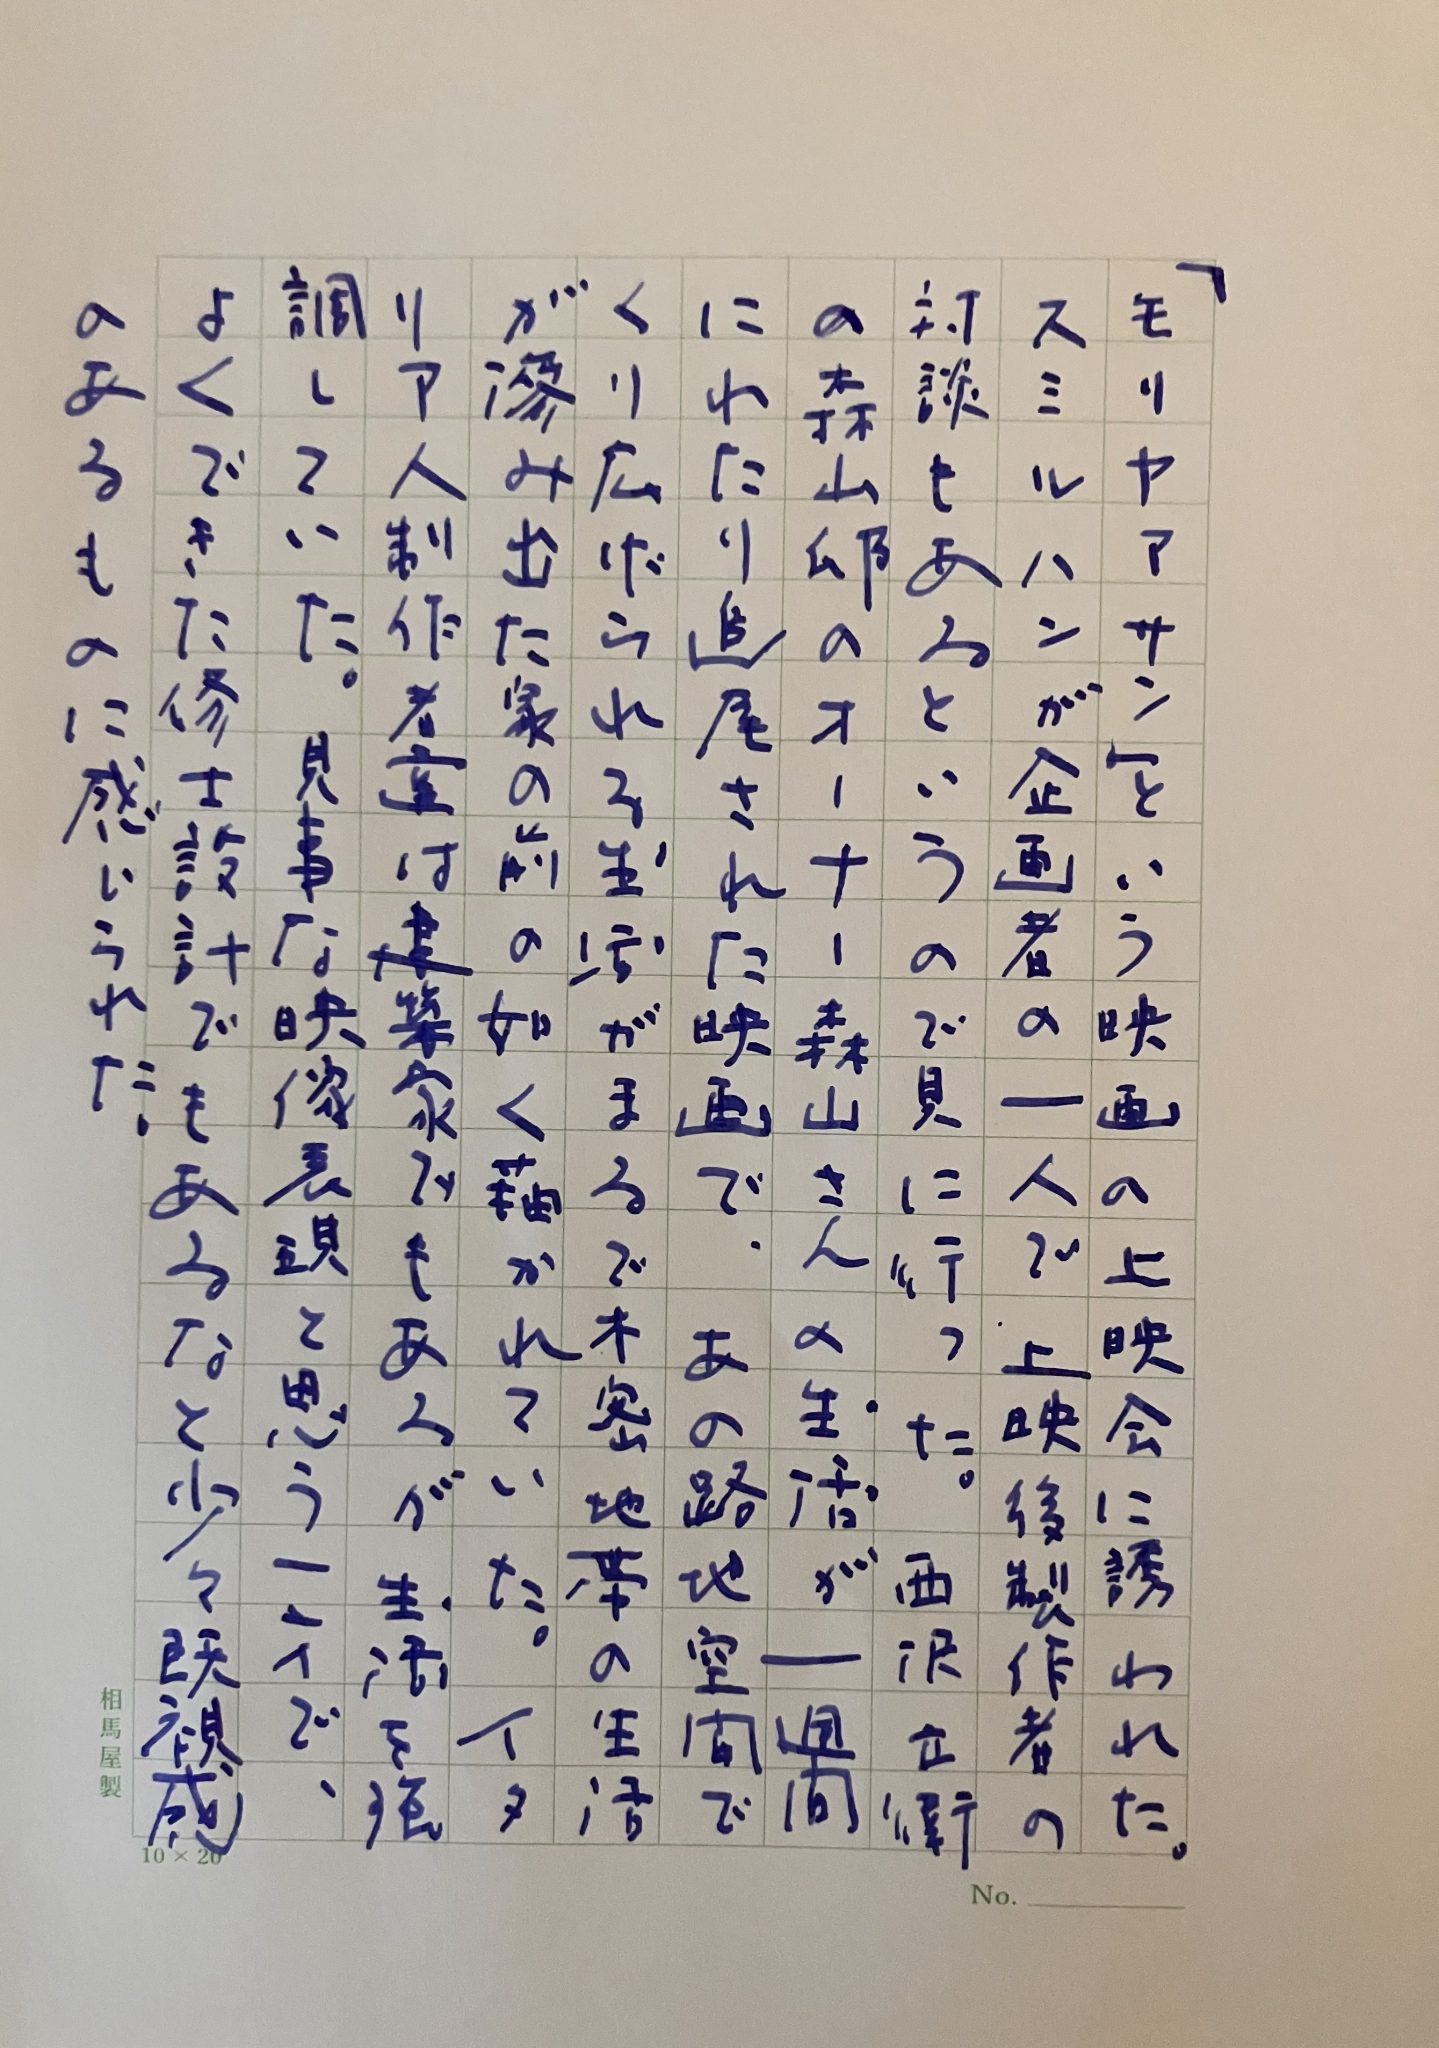 「モリヤアサン」という映画の上映会に誘われた。
スミルハンが企画者の一人で上映後製作者の
対談もあるというので見に行った。　西沢立衛
の森山邸のオーナー森山さんの生活が一週間
にわたり追尾された映画で、あの路地空間で
くり広げられる生活がまるで木密地帯の生活
が滲み出た家の前の如く描かれていた。　イタ
リア人制作者達は建築家でもあるが生活を強
調していた。　見事な映像表現と思う一ト イで、
よくできた修士設計でもあるなと少々既視感
のあるものに感じられた。
相馬屋製
10×20
No.